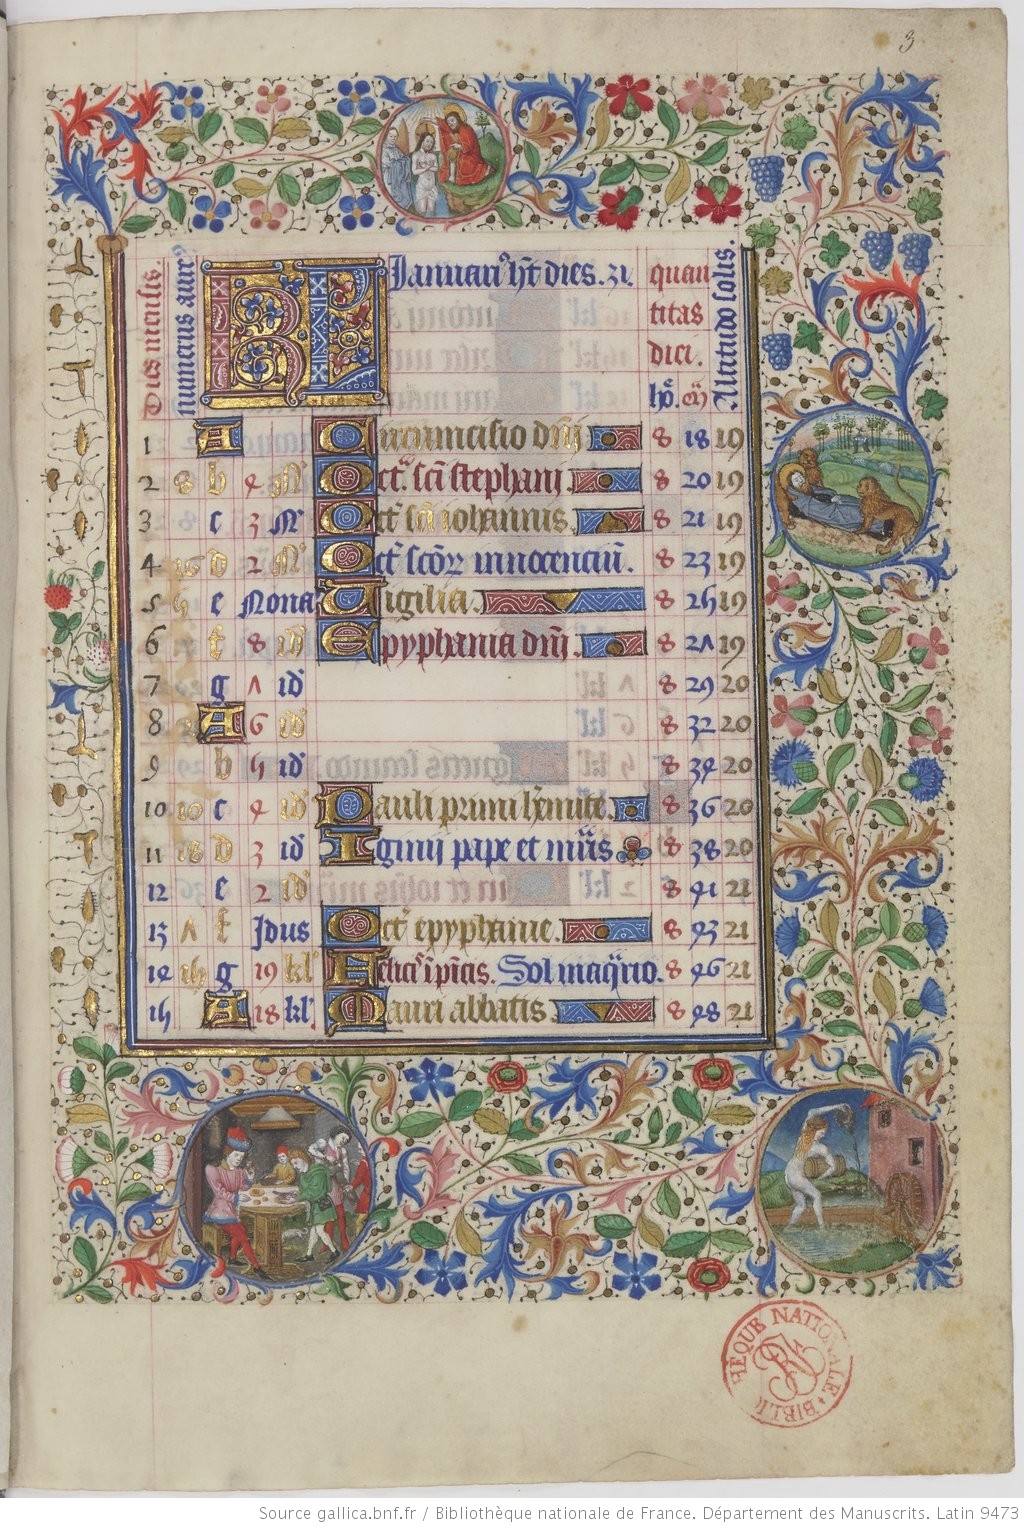 3
Dies mensis.
numerus aure9
KL Januari9 ht dies. 31
quan
titas
diei.
ho. m
Altitudo solis.
1 A Circumcisio dni 8 18 19
2 8 b 4 N Oct. sci stephani 8 20 19
3 c 3 N Oct sci iohannis 8 21 19
4 16 d 2 N Oct scor innocenciu. 8 23 19
5 5 e Nona Vigilia 8 25 19
6 f 8 id Epyphania dni 8 27 19
7 g 7 id 8 29 20
8 A 6 id 8 32 20
9 b 5 id 8 34 20
10 10 c 4 id Pauli primi hemite 8 36 20
11 18 d 3 id Iginij pape et mris 8 38 20
12 e 2 id 8 41 21
13 7 f Idus Oct epyphanie 8 43 21
14 15 g 19 kl Felicis i picis. Sol i aqrio. 8 46 21
15 A 18 kl Mauri abbatis 8 48 21
BIBLIOTHÈQUE NATIONALE
Source gallica.bnf.fr / Bibliothèque nationale de France. Département des Manuscrits. Latin 9473